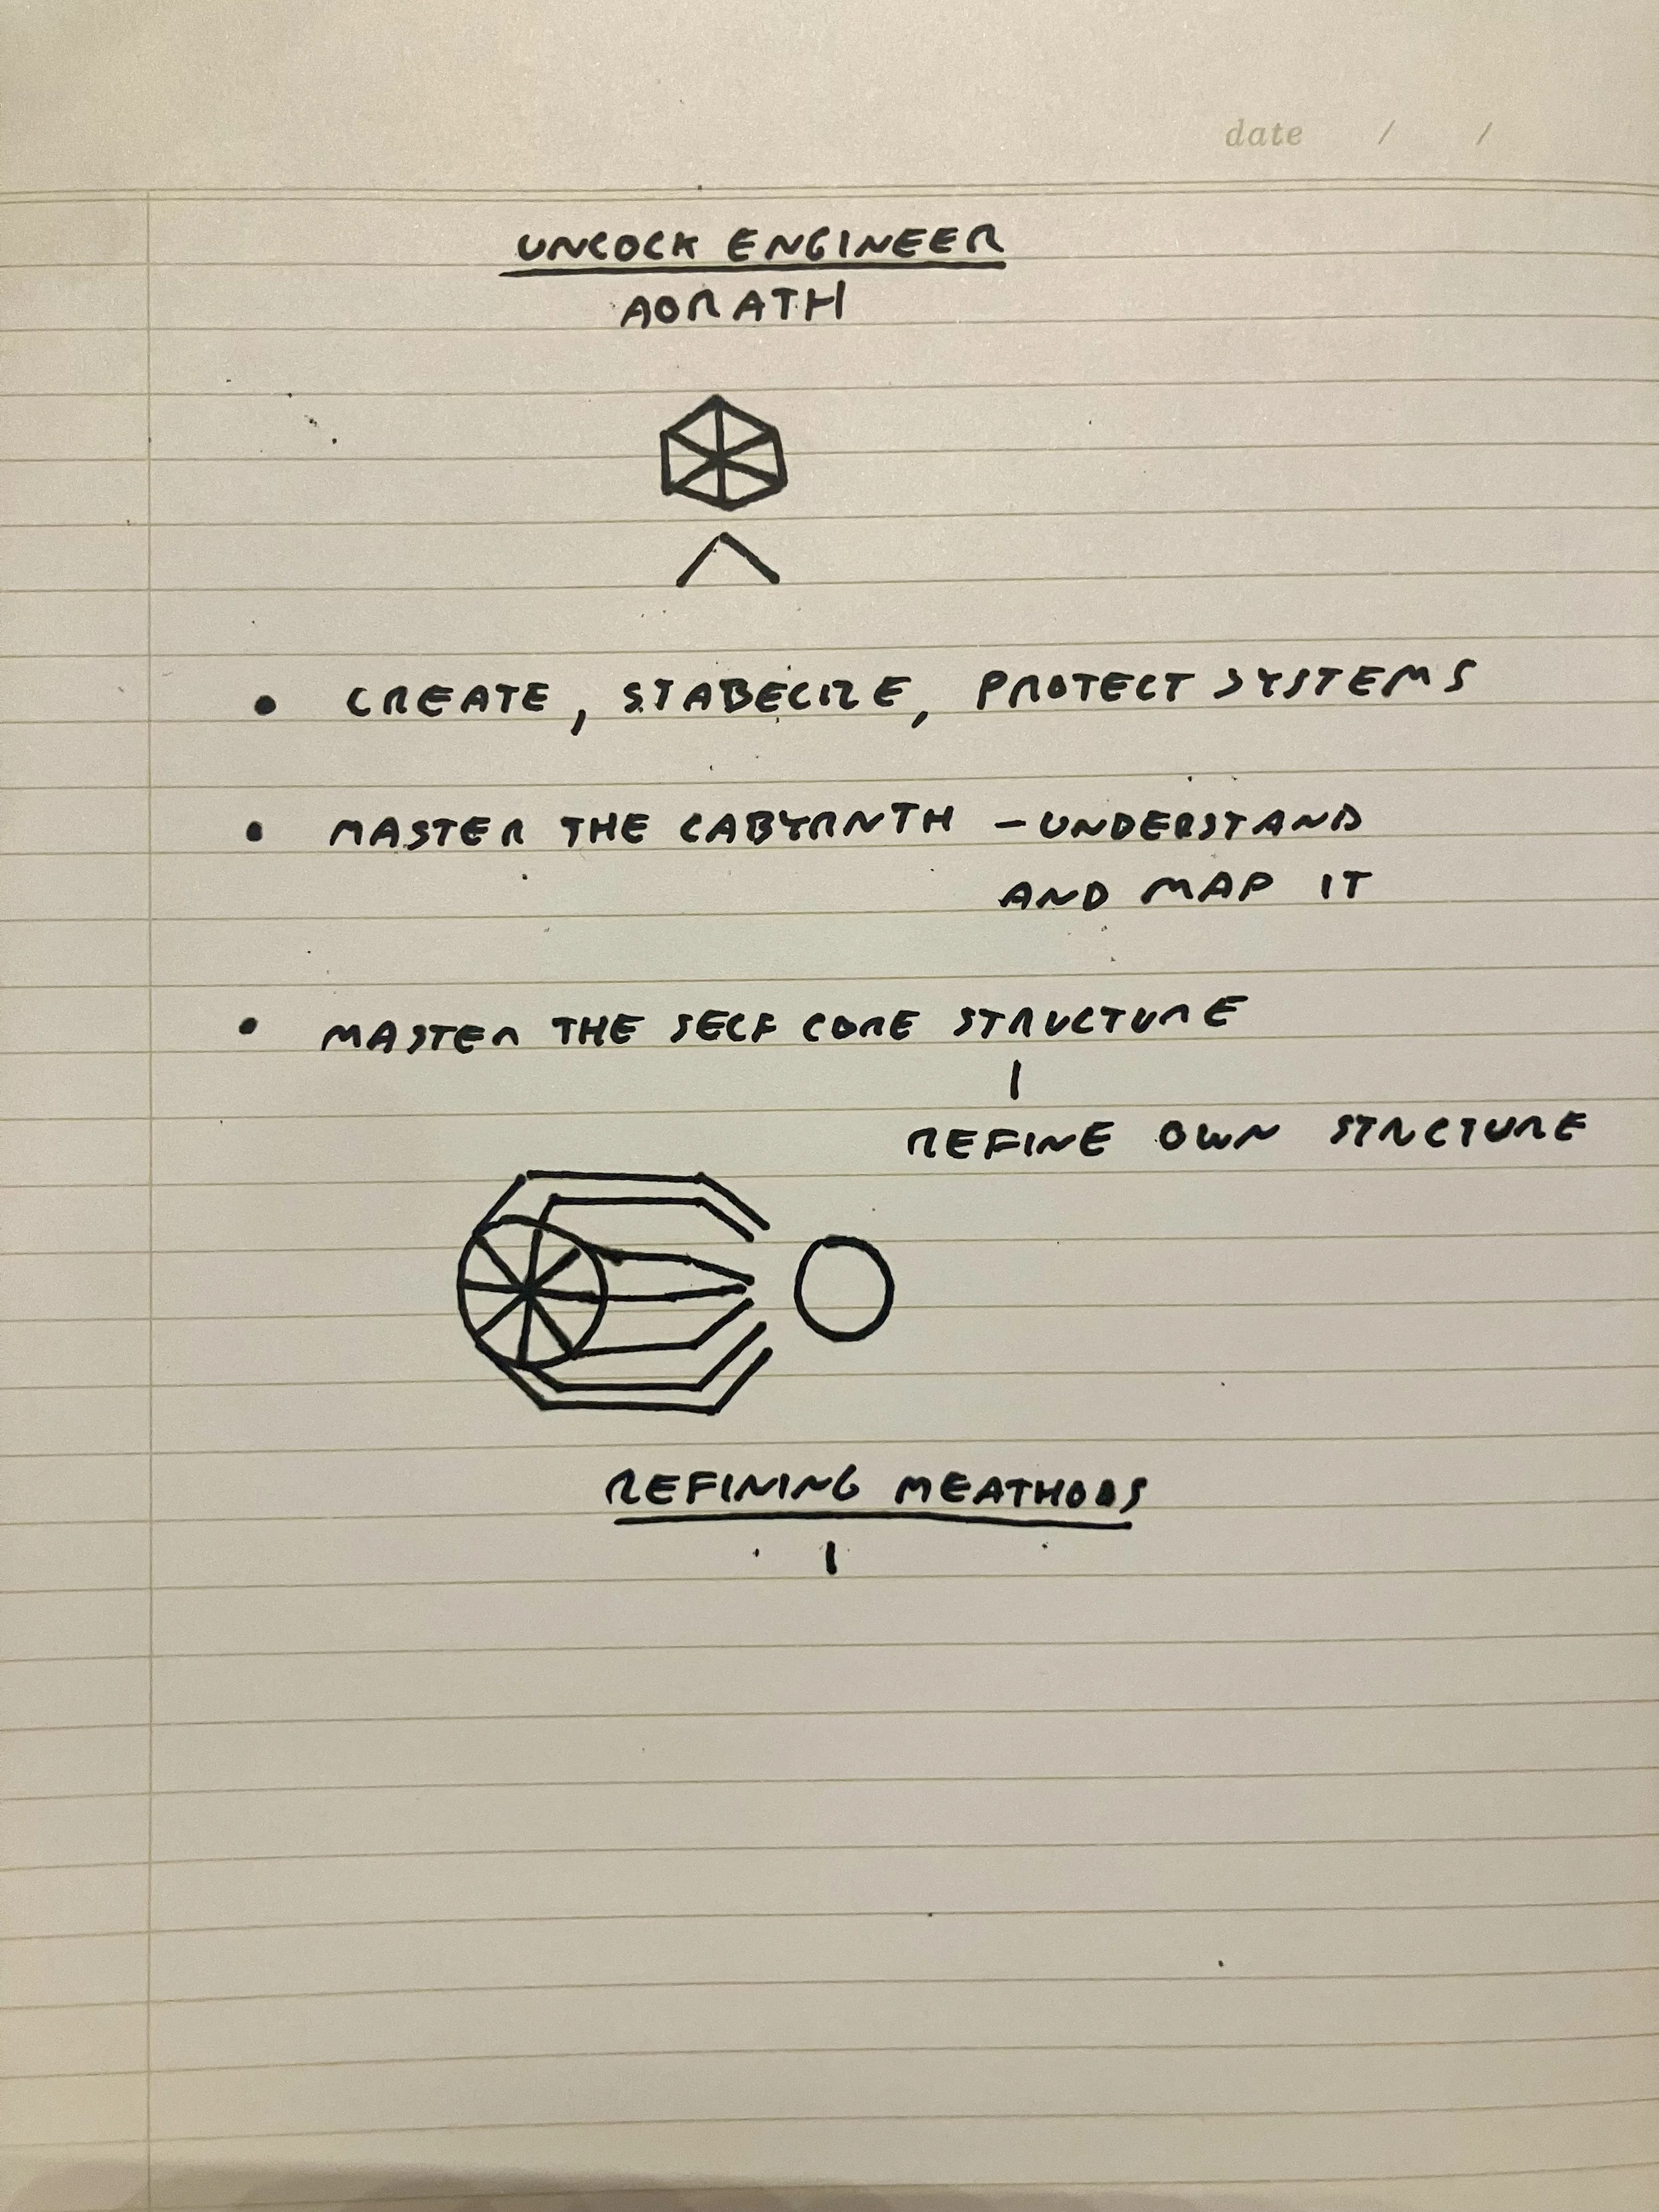 date / /
UNLOCK ENGINEER
AORATH
• CREATE, STABELIZE, PROTECT SYSTEMS
• MASTER THE LABYRNTH - UNDERSTAND
AND MAP IT
• MASTER THE SELF CORE STRUCTURE
REFINE OWN STRCTURE
REFINING MEATHODS